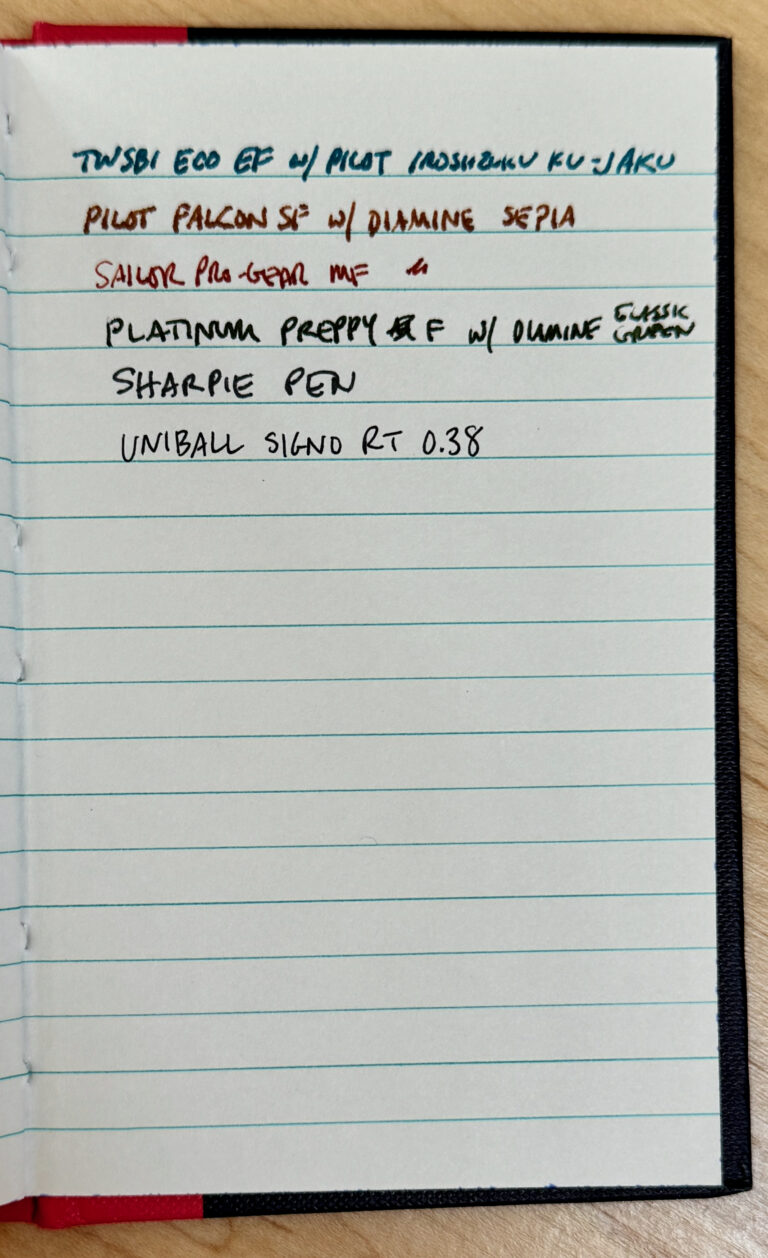 TWSBI ECO EF W/ PILOT IROSHIZUKU KU-JAKU
PILOT FALCON SF W/ DIAMINE SEPIA
SAILOR PRO-GEAR MF "
PLATINUM PREPPY F W/ DIAMINE CLASSIC GREEN
SHARPIE PEN
UNIBALL SIGNO RT 0.38